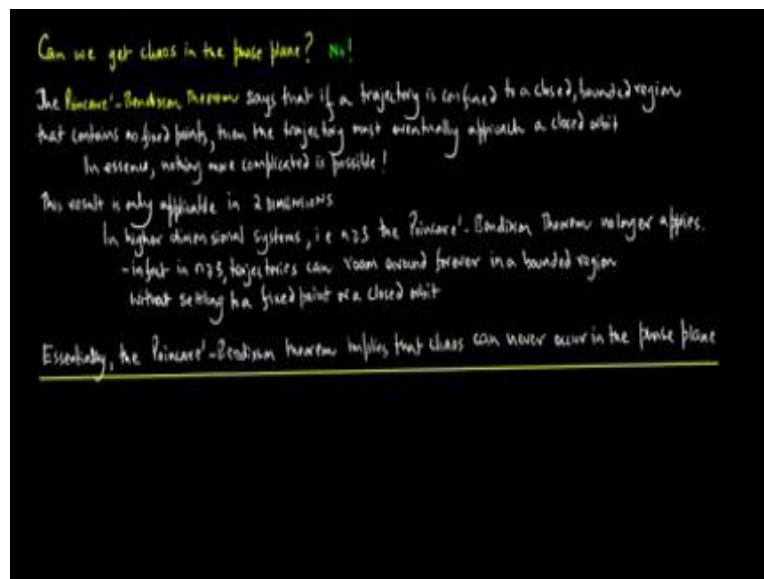 Can we get chaos in the phase plane? No!
The Poincare'-Bendixson Theorem says that if a trajectory is confined to a closed, bounded region
that contains no fixed points, then the trajectory must eventually approach a closed orbit
In essence, nothing more complicated is possible!
This result is only applicable in 2 DIMENSIONS
In higher dimensional systems, i.e n≥3 the Poincare'-Bendixson Theorem no longer applies.
- infact in n≥3, trajectories can roam around forever in a bounded region
without settling to a fixed point or a closed orbit
Essentially, the Poincare'-Bendixson theorem implies that chaos can never occur in the phase plane